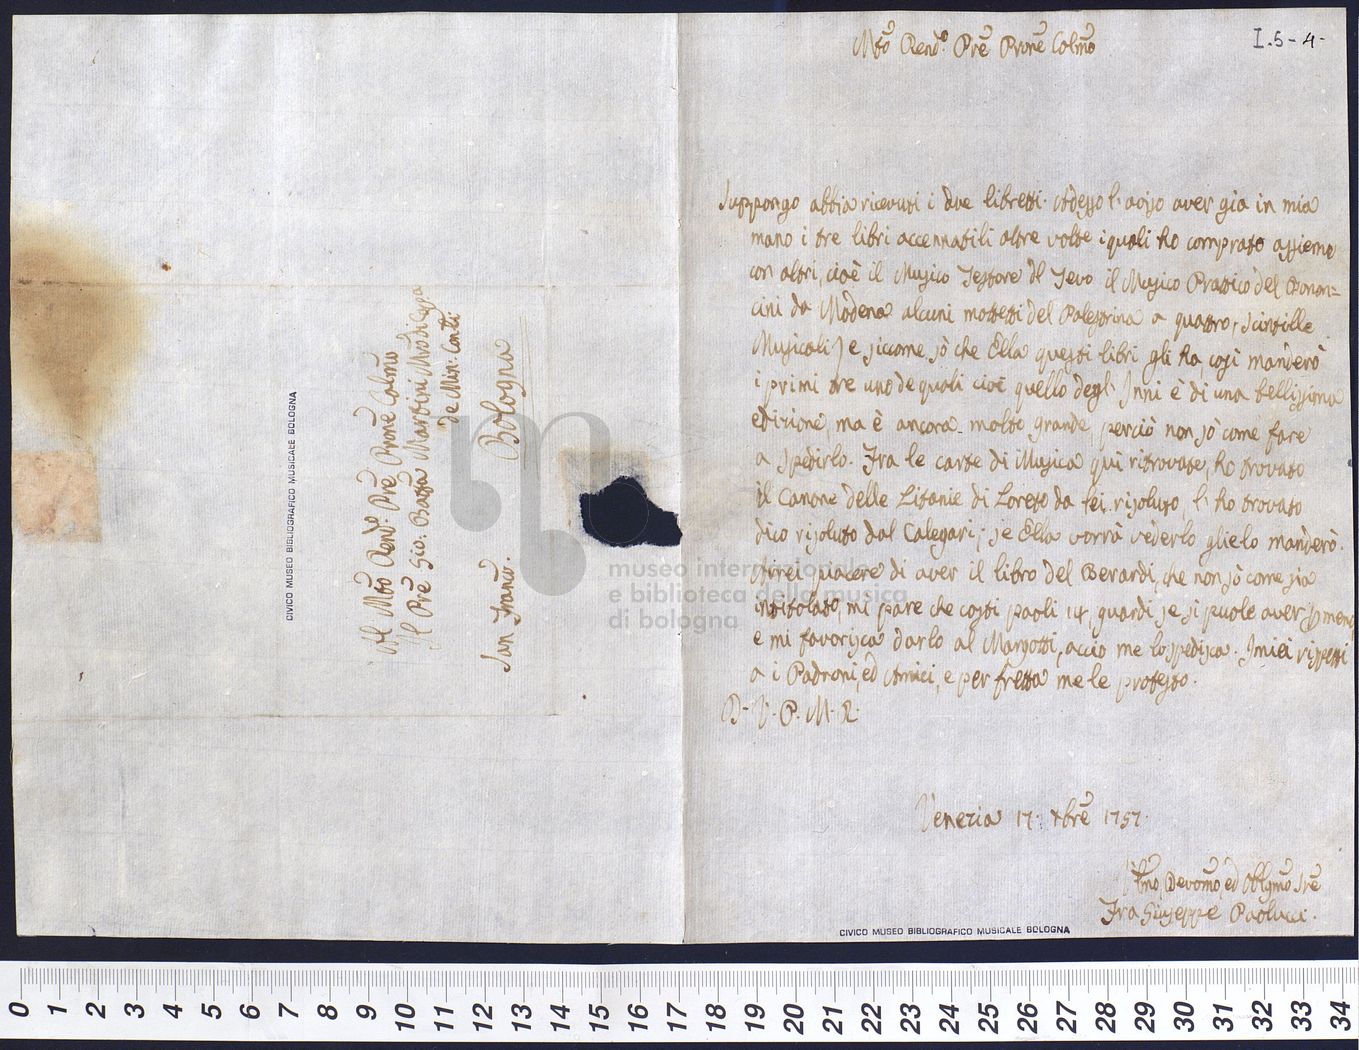 I.5-4-
Mto Rendo. Pre Prone Colmo
Suppongo abbia ricevuti i due libretti. Adesso l'aviso aver già in mia
mano i tre libri accennatili altre volte i quali ho comprato assieme
con altri, cioè il Musico Testore del Tevo il Musico Prattico del Bonon=
cini da Modena alcuni mottetti del Palestrina a quattro, Scintille
Musicali, e siccome sò che Ella questi libri gli ha così manderò
i primi tre uno de quali cioè quello degl'Inni è di una bellissima
edizione, ma è ancora molto grande perciò non sò come fare
a spedirlo. Fra le carte di Musica quì ritrovate, ho trovato
il Canone delle Litanie di Loreto da lei risoluto, l'ho trovato
dico risoluto dal Calegari; se Ella vorrà vederlo glielo manderò.
Avrei piacere di aver il libro del Berardi, che non sò come sia
intitolato, mi pare che costi paoli 14, guardi se si puole aver p meno
e mi favorisca darlo al Margotti, acciò me lo spedisca. I miei rispetti
a i Padroni, ed Amici, e per fretta me le protesto.
D. V. P. M. R.
Venezia 17. xbre 1757.
Umo, Devomo, ed Obbligmo Sre
Fra Giuseppe Paolucci.
CIVICO MUSEO BIBLIOGRAFICO MUSICALE BOLOGNA
Al Mto Rendo. Pre Prone Colmo
Il Pre Gio: Batta Martini Mro di Cappa
de Min: Conti
Bologna
San Franco.
CIVICO MUSEO BIBLIOGRAFICO MUSICALE BOLOGNA
museo internazionale
e biblioteca della musica
di bologna
0 1 2 3 4 5 6 7 8 9 10 11 12 13 14 15 16 17 18 19 20 21 22 23 24 25 26 27 28 29 30 31 32 33 34